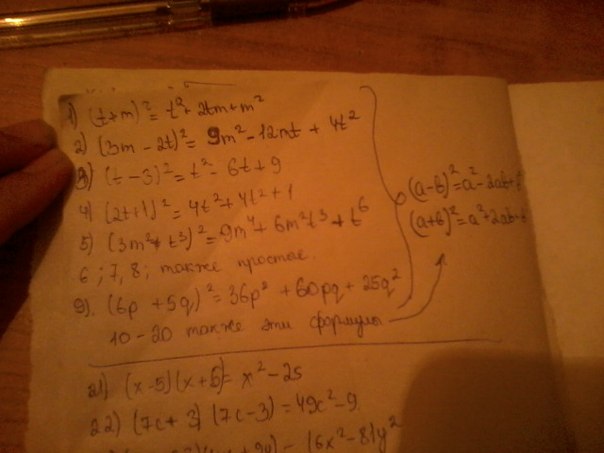 1) (t+m)² = t² + 2tm + m²
2) (3m − 2t)² = 9m² − 12mt + 4t²
3) (t − 3)² = t² − 6t + 9
4) (2t+1)² = 4t² + 4t² + 1
5) (3m² + t³)² = 9m⁴ + 6m²t³ + t⁶
6; 7, 8; также простые.
9). (6p + 5q)² = 36p² + 60pq + 25q²
10 – 20 также эти формулы
(a−b)² = a² − 2ab +
(a+b)² = a² + 2ab +
21) (x−5)(x+5) = x² − 25
22) (7c + 3) (7c − 3) = 49c² − 9
− 16x² − 81y²